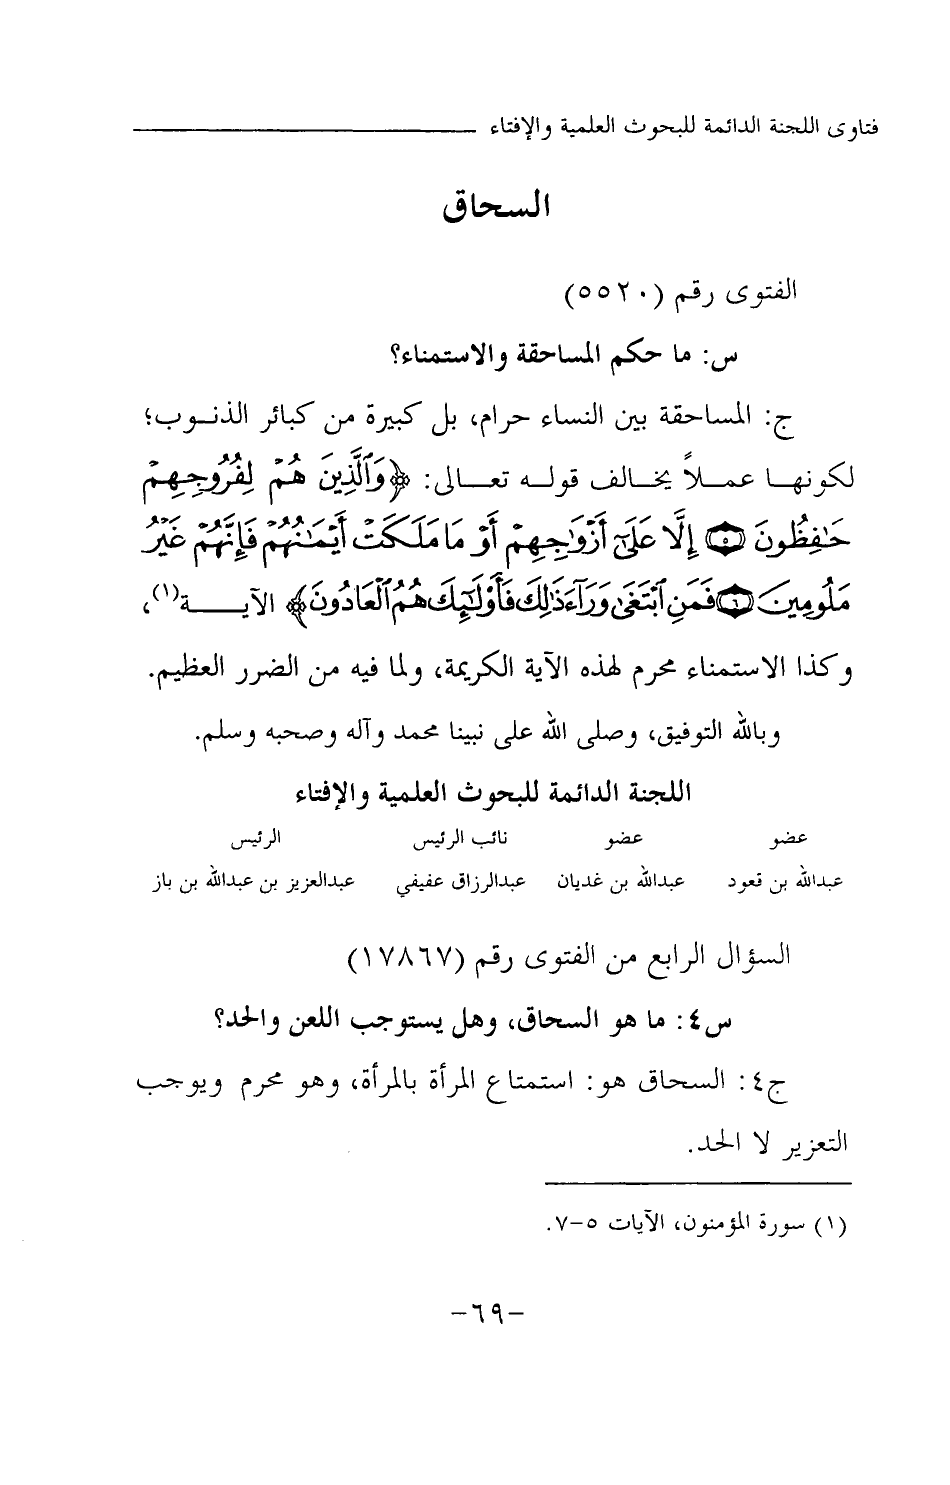 فتاوى اللجنة الدائمة للبحوث العلمية والإفتاء
السحاق
الفتوى رقم (٥٥٢٠)
س: ما حكم المساحقة والاستمناء؟
ج: المساحقة بين النساء حرام، بل كبيرة من كبائر الذنوب؛
لكونها عملاً يخالف قوله تعالى: ﴿وَٱلَّذِينَ هُمۡ لِفُرُوجِهِمۡ
حَٰفِظُونَ ۝٥ إِلَّا عَلَىٰٓ أَزۡوَٰجِهِمۡ أَوۡ مَا مَلَكَتۡ أَيۡمَٰنُهُمۡ فَإِنَّهُمۡ غَيۡرُ
مَلُومِينَ ۝٦ فَمَنِ ٱبۡتَغَىٰ وَرَآءَ ذَٰلِكَ فَأُوْلَٰٓئِكَ هُمُ ٱلۡعَادُونَ﴾ الآية(١)،
وكذا الاستمناء محرم لهذه الآية الكريمة، ولما فيه من الضرر العظيم.
وبالله التوفيق، وصلى الله على نبينا محمد وآله وصحبه وسلم.
اللجنة الدائمة للبحوث العلمية والإفتاء
عضو عضو نائب الرئيس الرئيس
عبدالله بن قعود عبدالله بن غديان عبدالرزاق عفيفي عبدالعزيز بن عبدالله بن باز
السؤال الرابع من الفتوى رقم (١٧٨٦٧)
س٤: ما هو السحاق، وهل يستوجب اللعن والحد؟
ج٤: السحاق هو: استمتاع المرأة بالمرأة، وهو محرم ويوجب
التعزير لا الحد.
(١) سورة المؤمنون، الآيات ٥-٧.
-٦٩-